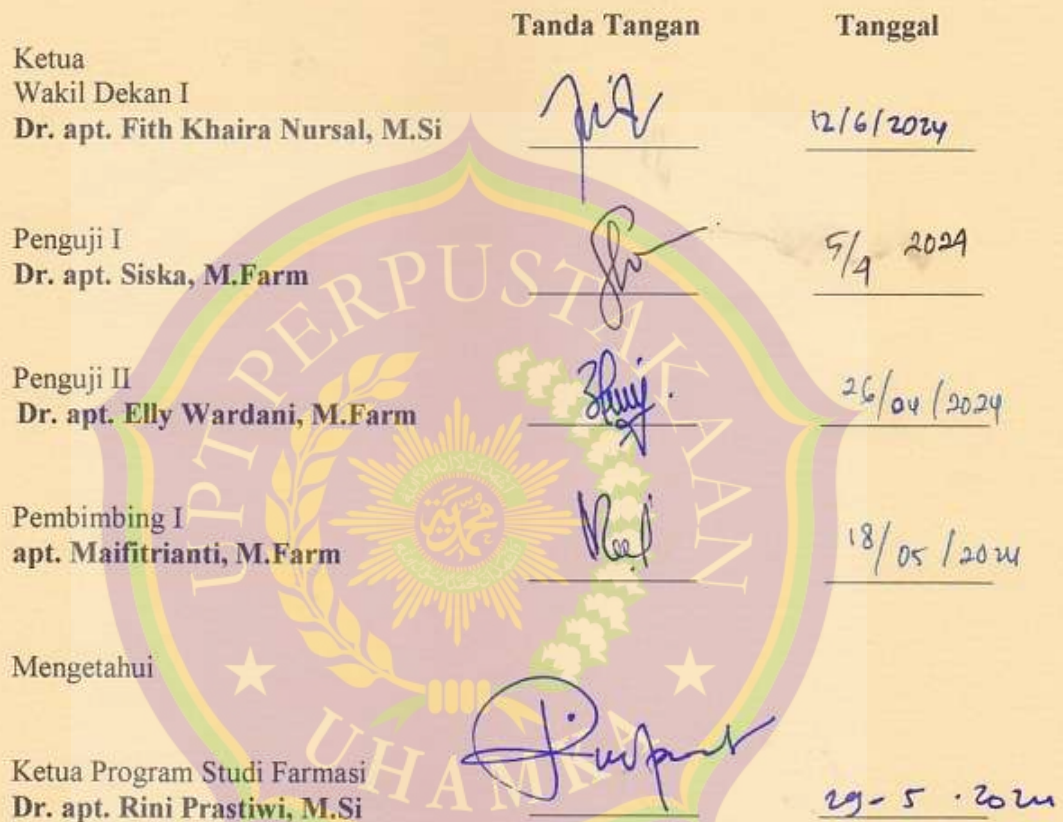 Tanda Tangan Tanggal
Ketua
Wakil Dekan I
Dr. apt. Fith Khaira Nursal, M.Si 12/6/2024
Penguji I
Dr. apt. Siska, M.Farm 5/4 2024
Penguji II
Dr. apt. Elly Wardani, M.Farm 26/04/2024
Pembimbing I
apt. Maifitrianti, M.Farm 18/05/2024
Mengetahui
Ketua Program Studi Farmasi
Dr. apt. Rini Prastiwi, M.Si 29-5.2024
UPT PERPUSTAKAAN
UHAMKA